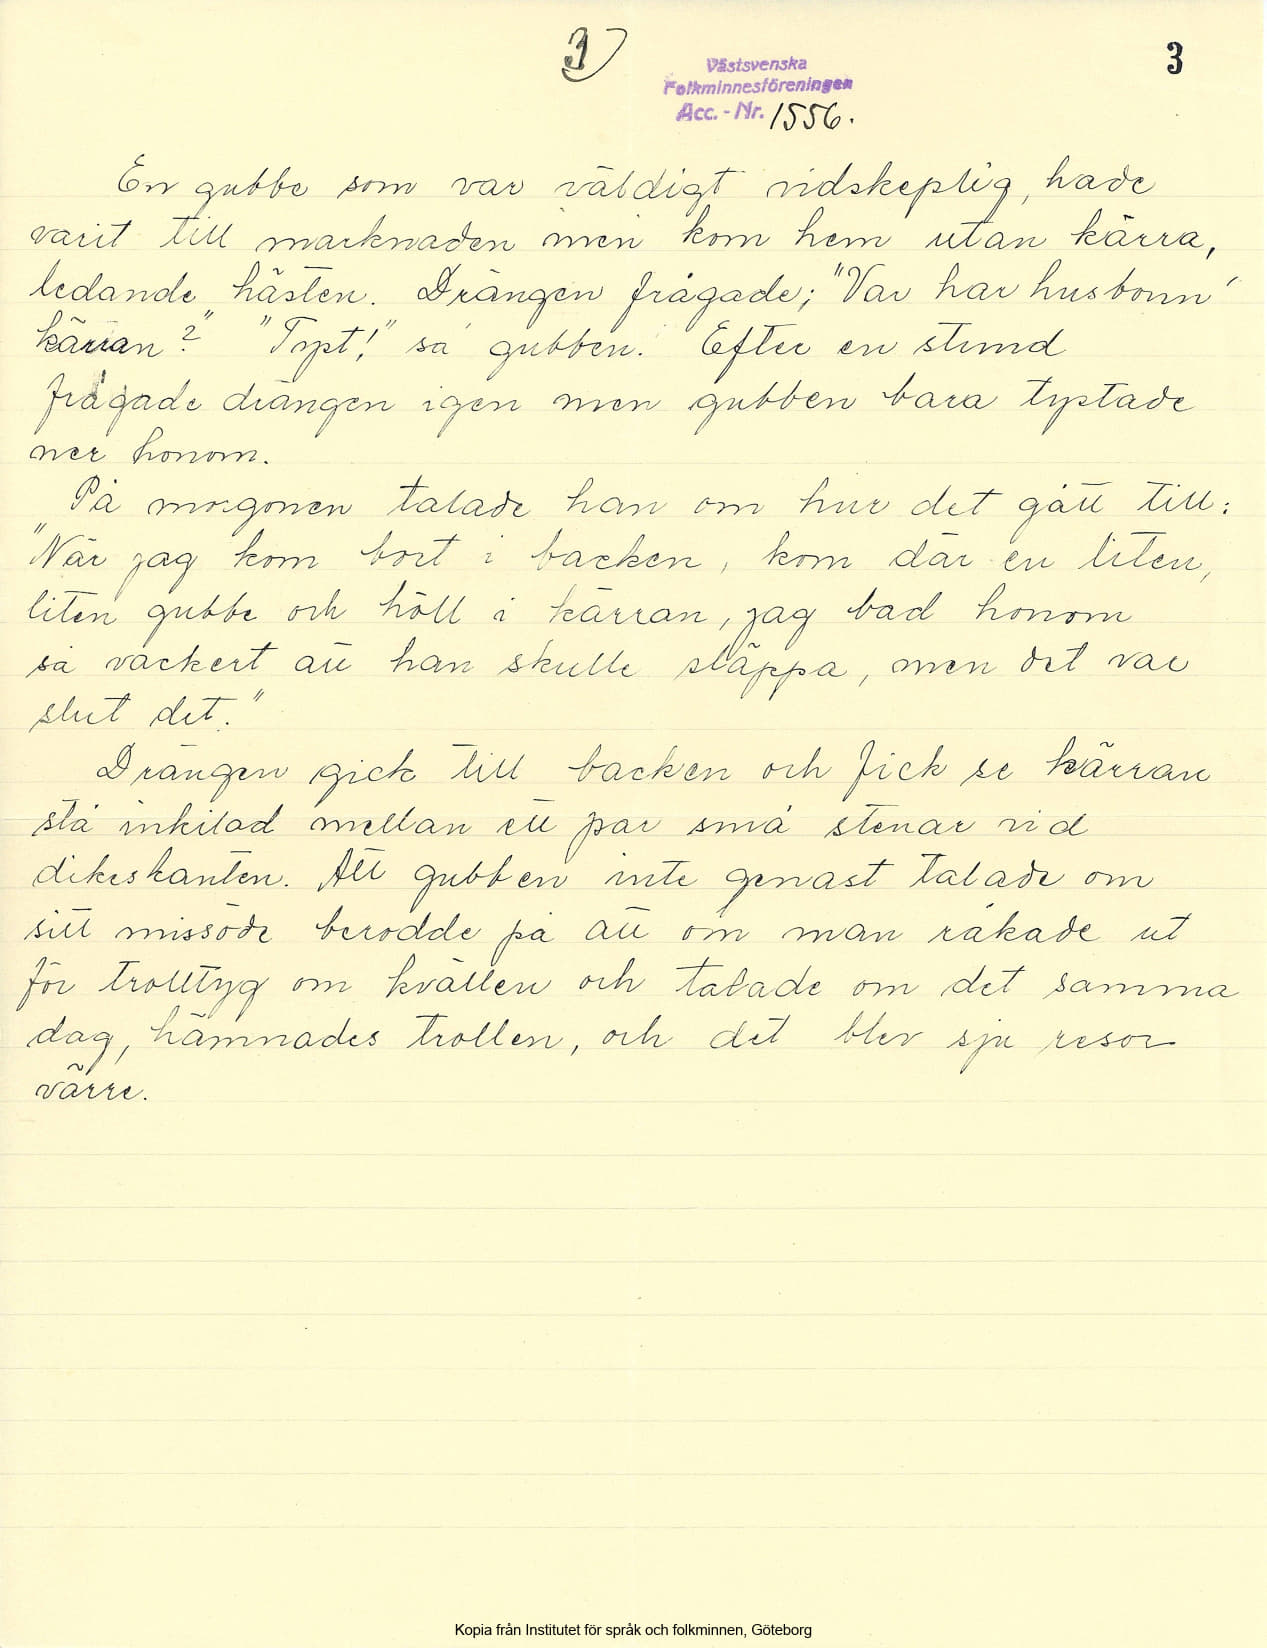 3
Västsvenska
Folkminnesföreningen
Acc.-Nr. 1556.
En gubbe som var väldigt vidskeplig, hade
varit till marknaden men kom hem utan kärra,
ledande hästen. Drängen frågade; "Var har husbonn'
kärran?" "Tyst!" sa gubben. Efter en stund
frågade drängen igen men gubben bara tystade
ner honom.
På morgonen talade han om hur det gått till:
"När jag kom bort i backen, kom där en liten,
liten gubbe och höll i kärran, jag bad honom
så vackert att han skulle släppa, men det var
slut det."
Drängen gick till backen och fick se kärran
stå inkilad mellan ett par små stenar vid
dikeskanten. Att gubben inte genast talade om
sitt missöde berodde på att om man råkade ut
för trolltyg om kvällen och talade om det samma
dag, hämnades trollen, och det blev sju resor
värre.
Kopia från Institutet för språk och folkminnen, Göteborg